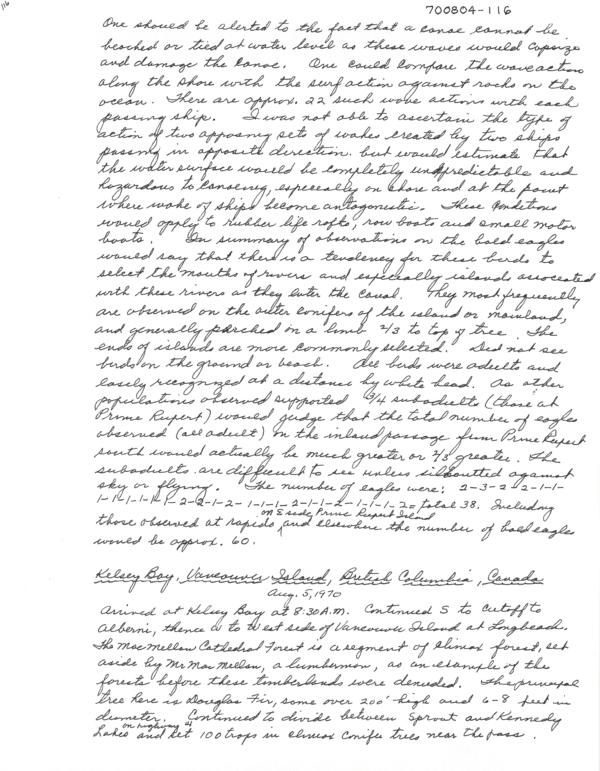 116
700804-116
One should be alerted to the fact that a canoe cannot be
beached or tied at water level as these waves would capsize
and damage the canoe. One could compare the wave action
along the shore with the surf action against rocks on the
ocean. There are approx. 22 such wave actions with each
passing ship. I was not able to ascertain the type of
action of two opposing sets of wakes created by two ships
passing in opposite direction but would estimate that
the water surface would be completely unpredictable and
hazardous to canoeing, especially on shore and at the point
where wake of ships become antagonistic. These conditions
would apply to rubber life rafts, row boats and small motor
boats. In summary of observations on the bald eagles
would say that there is a tendency for these birds to
select the mouths of rivers and especially islands associated
with these rivers as they enter the canal. They most frequently
are observed on the outer conifers of the island or mainland,
and generally perched on a limb 2/3 to top of tree. The
ends of islands are more commonly selected. Did not see
birds on the ground or beach. All birds were adults and
easily recognized at a distance by white head. As other
populations observed supported 3/4 subadults (those at
Prince Rupert) would judge that the total number of eagles
observed (all adult) on the inland passage from Prince Rupert
south would actually be much greater or 2/3 greater. The
subadults are difficult to see unless silhoutted against
sky or flying. The number of eagles were: 2-3-2-2-1-1-
1-1-1-1-1-1-2-2-1-2-1-1-1-2-1-1-2-1-1-1-2 = total 38. Including
those observed at rapids on E side Prince Rupert Island and elsewhere the number of bald eagles
would be approx. 60.
Kelsey Bay, Vancouver Island, British Columbia, Canada
Aug. 5, 1970
Arrived at Kelsey Bay at 8:30 A.M. Continued S to cutoff to
Alberni, thence W to West side of Vancouver Island at Longbeach.
The MacMellan Cathedral Forest is a segment of climax forest, set
aside by Mr. MacMellan, a lumberman, as an example of the
forests before these timberlands were denuded. The principal
tree here is Douglas Fir, some over 200' high and 6-8 feet in
diameter. Continued to divide between Sproat and Kennedy
Lakes on highway 4 and set 100 traps in climax conifer trees near the pass.